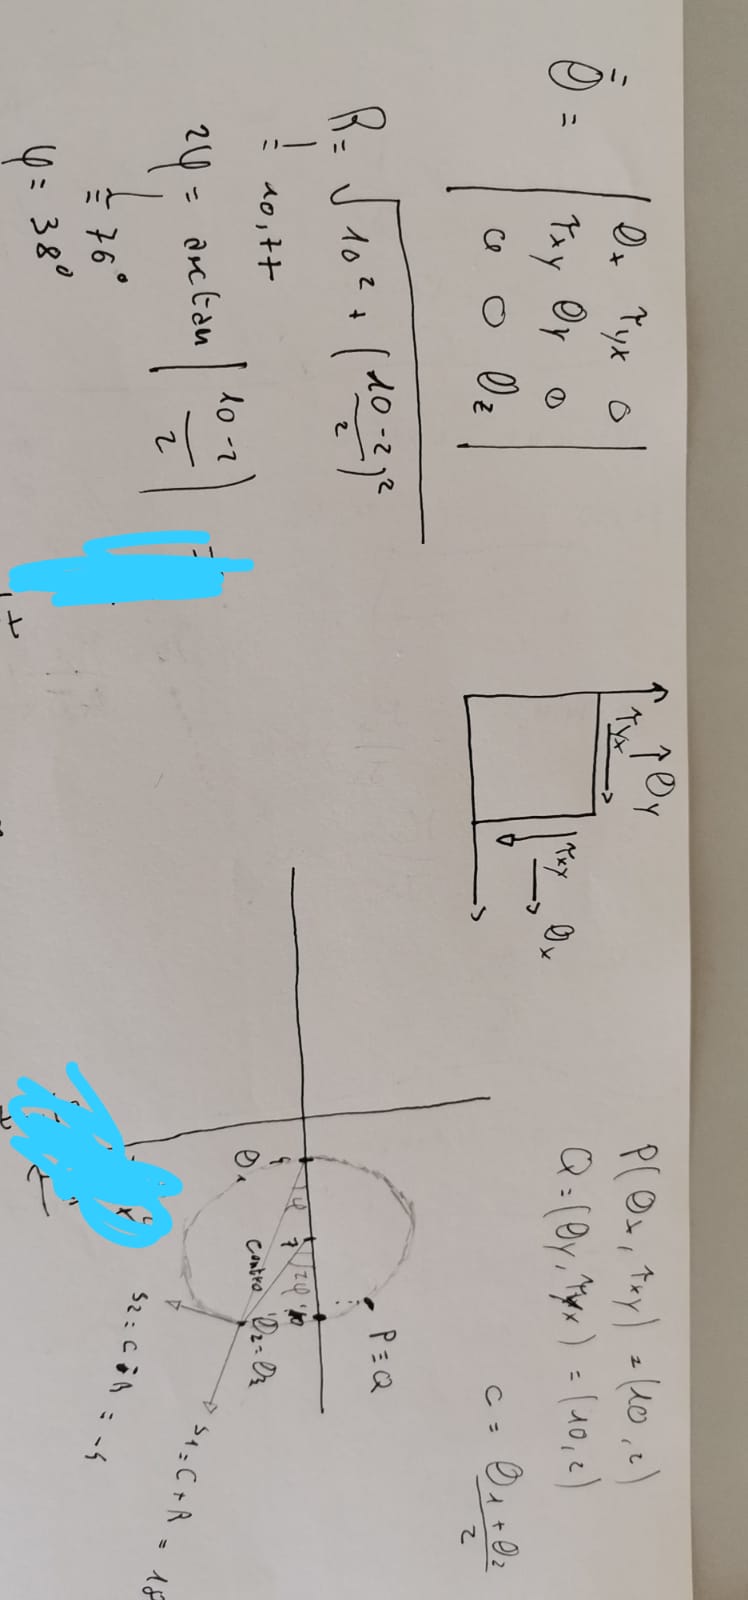 σ̿ =
| σx τyx 0 |
| τxy σy 0 |
| 0 0 σz |
R = √(10² + ((10-2)/2)²)
= 10,77
2φ = arctan |(10-2)/2|
= 76°
φ = 38°
σy
τyx
τxy
σx
P(σx, τxy) = (10, 2)
Q = (σy, τyx) = (10, 2)
C = (σ1+σ2)/2
P≡Q
4
φ
7
2φ
10
σ1
centro
σ2=σ3
S1 = C+R = 18
S2 = C-R = -4